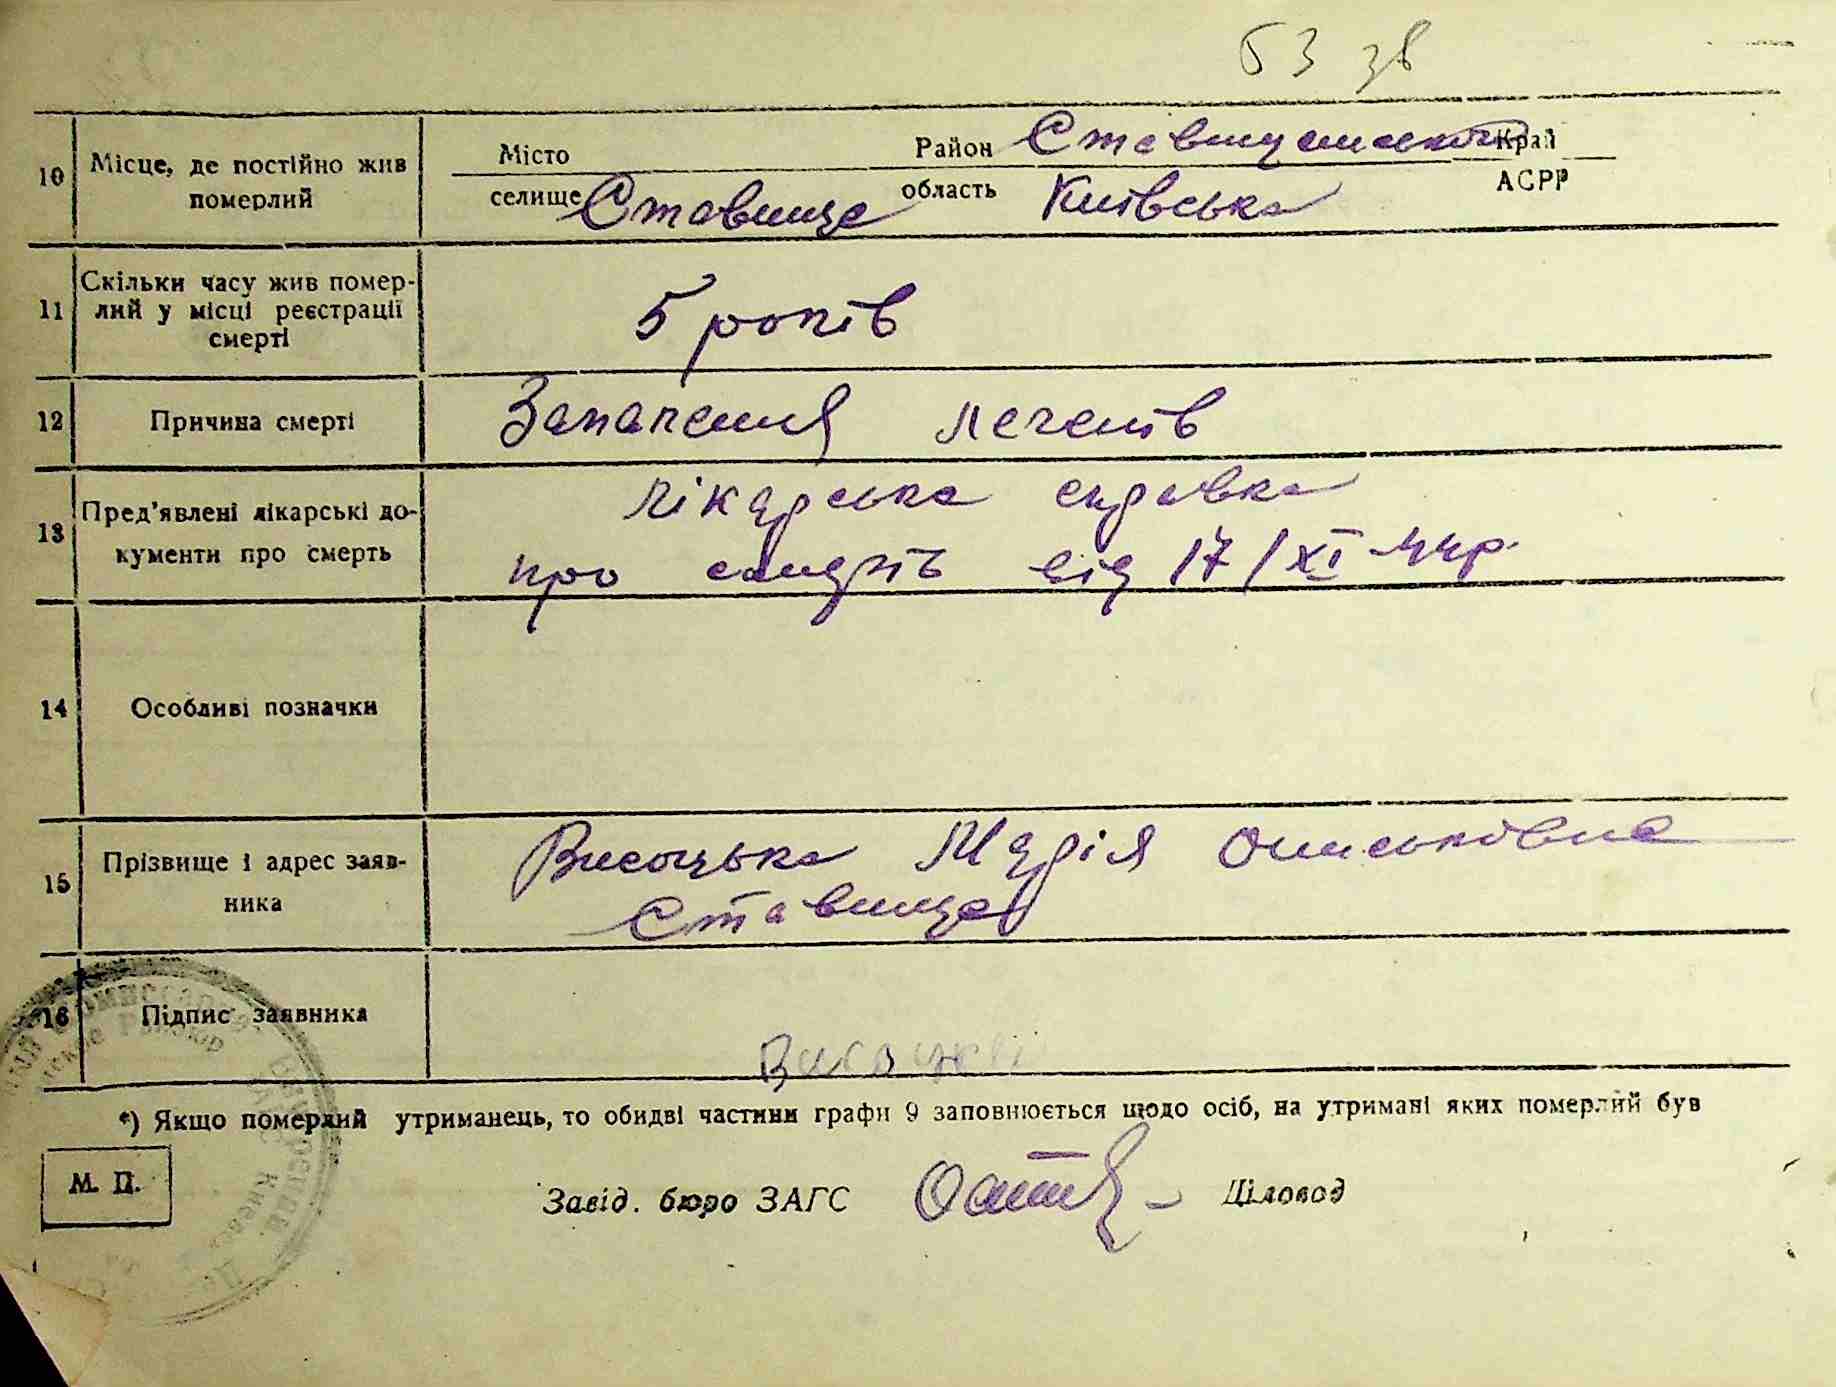 53 зв
10 Місце, де постійно жив померлий
Місто Район Ставищанський Край
селище Ставище область Київська АСРР
11 Скільки часу жив помер-
лий у місці реєстрації
смерті
5 років
12 Причина смерті
Запалення легенів
13 Пред'явлені лікарські до-
кументи про смерть
Лікарська справка
про смерть від 17/XI 44р.
14 Особливі позначки
15 Прізвище і адрес заяв-
ника
Висоцька Марія
Ставище
16 Підпис заявника
*) Якщо померлий утриманець, то обидві частини графи 9 заповнюється щодо осіб, на утримані яких померлий був
М. П.
Завід. бюро ЗАГС Діловод